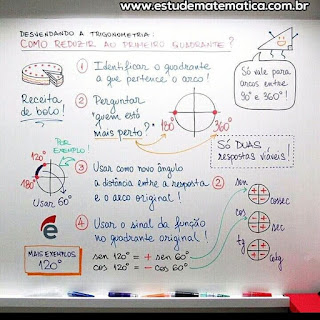 www.estudematematica.com.br
DESVENDANDO A TRIGONOMETRIA:
COMO REDUZIR AO PRIMEIRO QUADRANTE?
Receita
de bolo!
1 Identificar o quadrante
a que pertence o arco!
2 Perguntar
"quem está
mais perto?"
180°
360°
Só vale para
arcos entre
90° e 360°!
Só DUAS
respostas viáveis!
POR
EXEMPLO!
120°
180°
Usar 60°
3 Usar como novo ângulo
a distância entre a resposta 2
e o arco original!
4 Usar o sinal da função
no quadrante original!
sen
+ +
- -
cossec
cos
- +
- +
sec
tg
- +
+ -
cotg
MAIS EXEMPLOS
120°
sen 120° = + sen 60°
cos 120° = - cos 60°